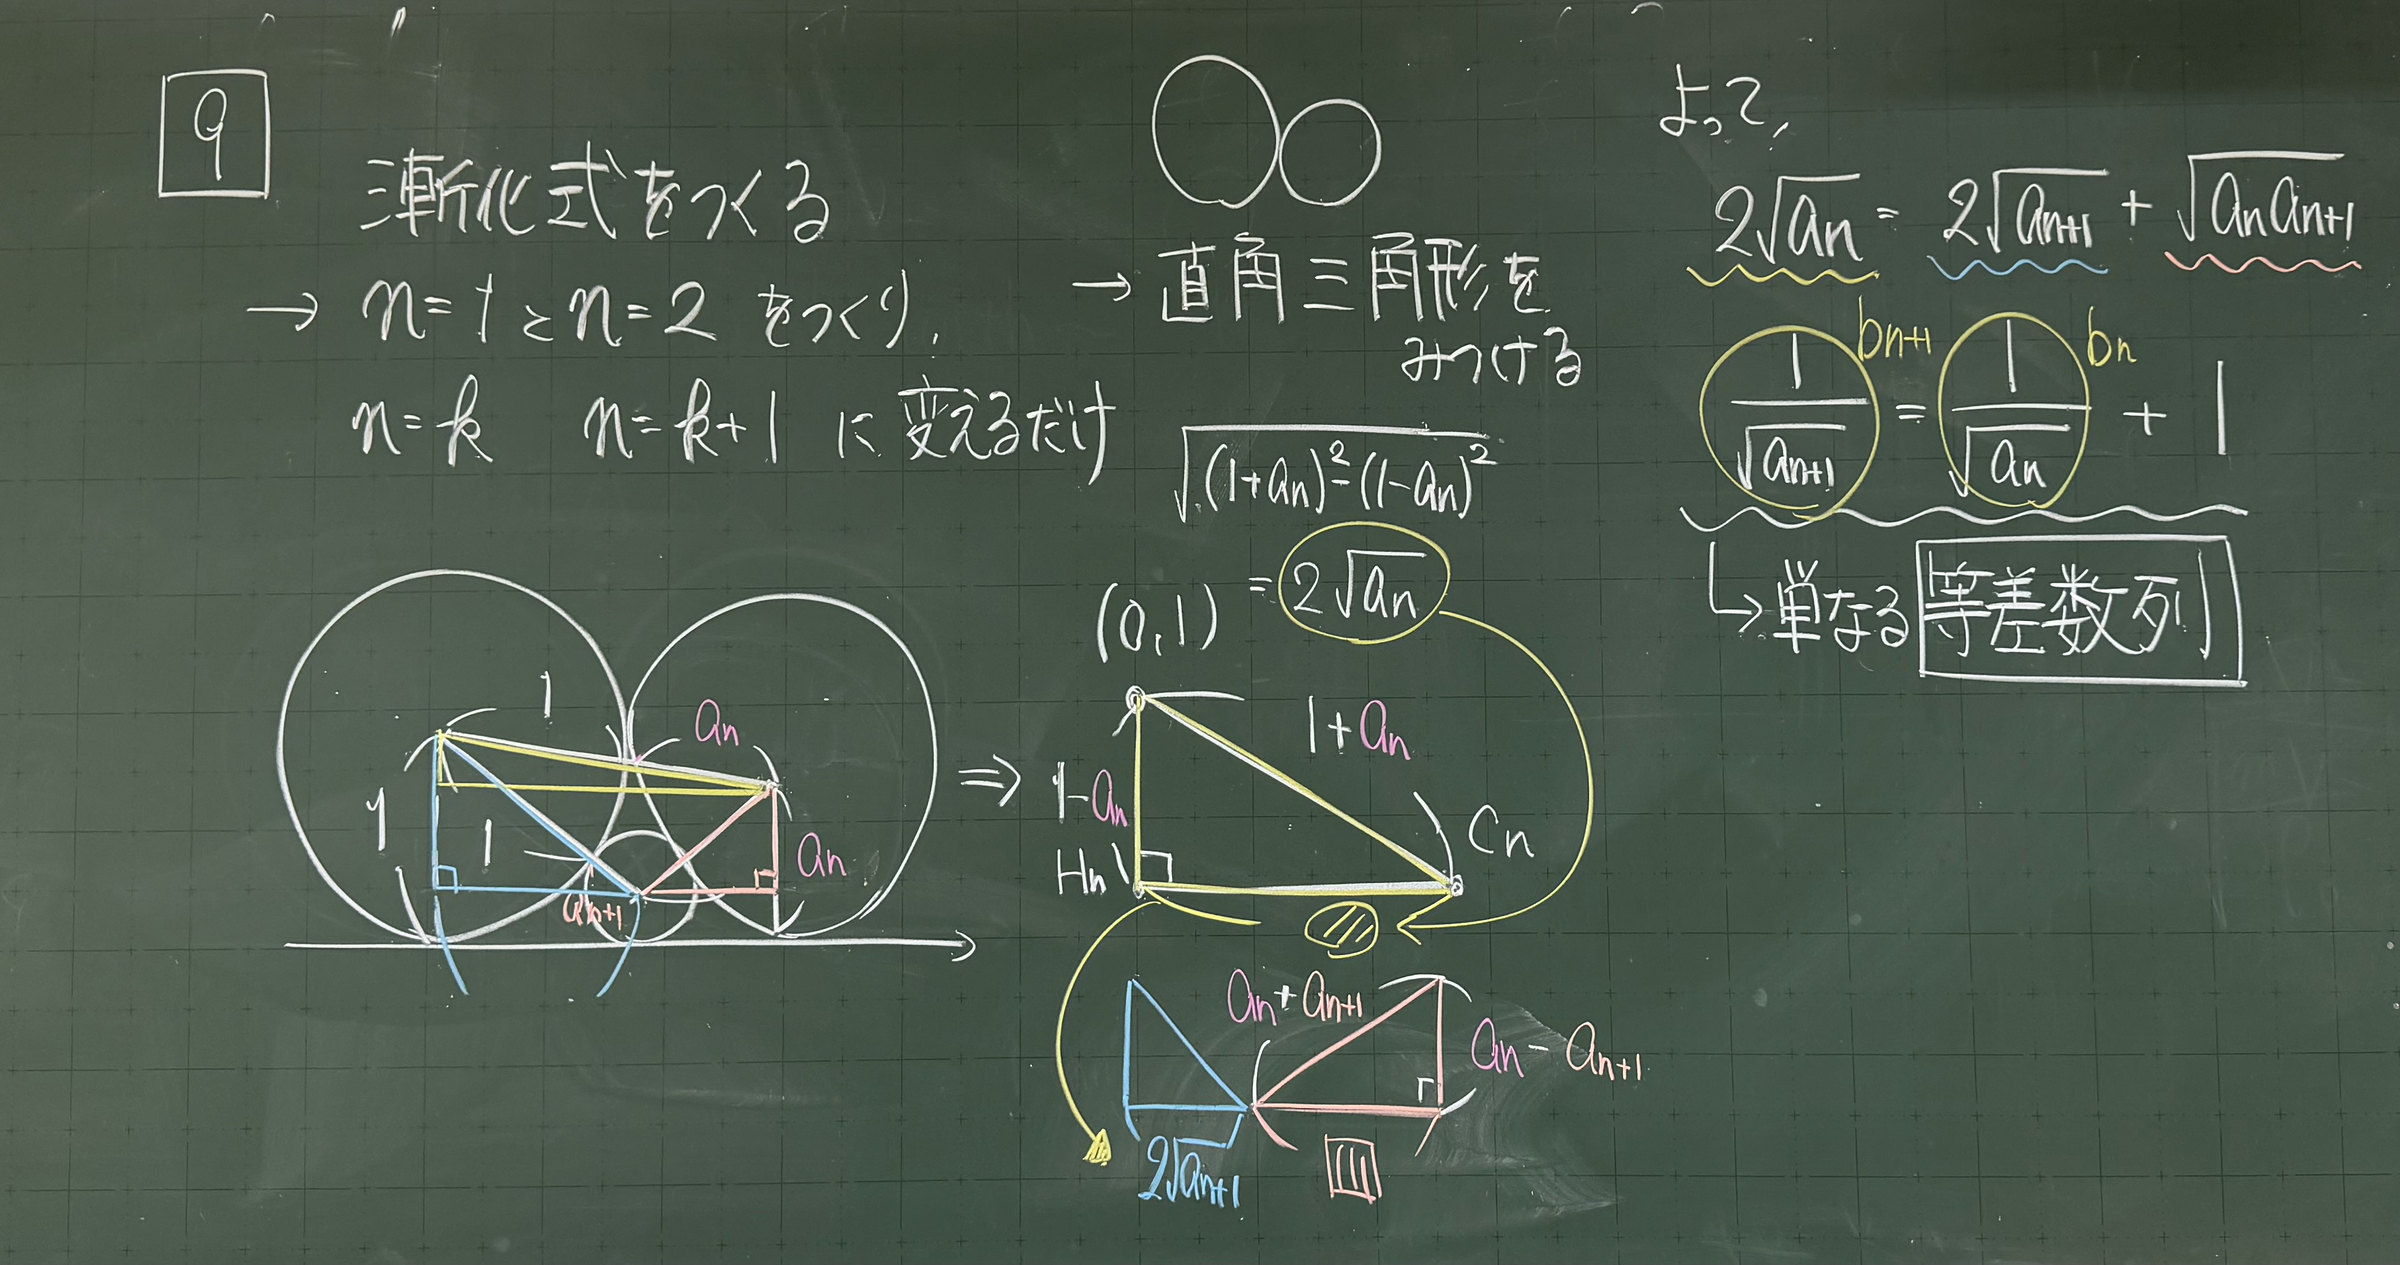 9
漸化式をつくる
→ n=1とn=2 をつくり,
n=k n=k+1 に変えるだけ
1
an
1
1
an
an+1
⇒
→ 直角三角形を
みつける
√(1+an)²-(1-an)²
= 2√an
(0,1)
1+an
1-an
Hn
Cn
an+an+1
an-an+1
2√an+1
よって,
2√an = 2√an+1 + √anan+1
bn+1 bn
1/√an+1 = 1/√an + 1
↳ 単なる 等差数列